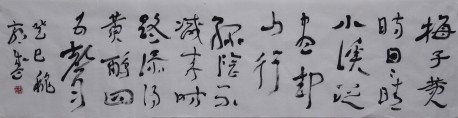 梅子黄
时日日晴
小溪泛
尽却
山行
绿阴不
减来时
路添得
黄鹂四
五声
癸巳秋